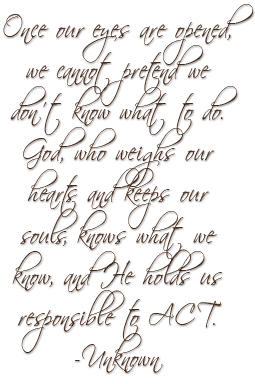 Once our eyes are opened,
we cannot pretend we
don't know what to do.
God, who weighs our
hearts and keeps our
souls, knows what we
know, and He holds us
responsible to ACT.
-Unknown